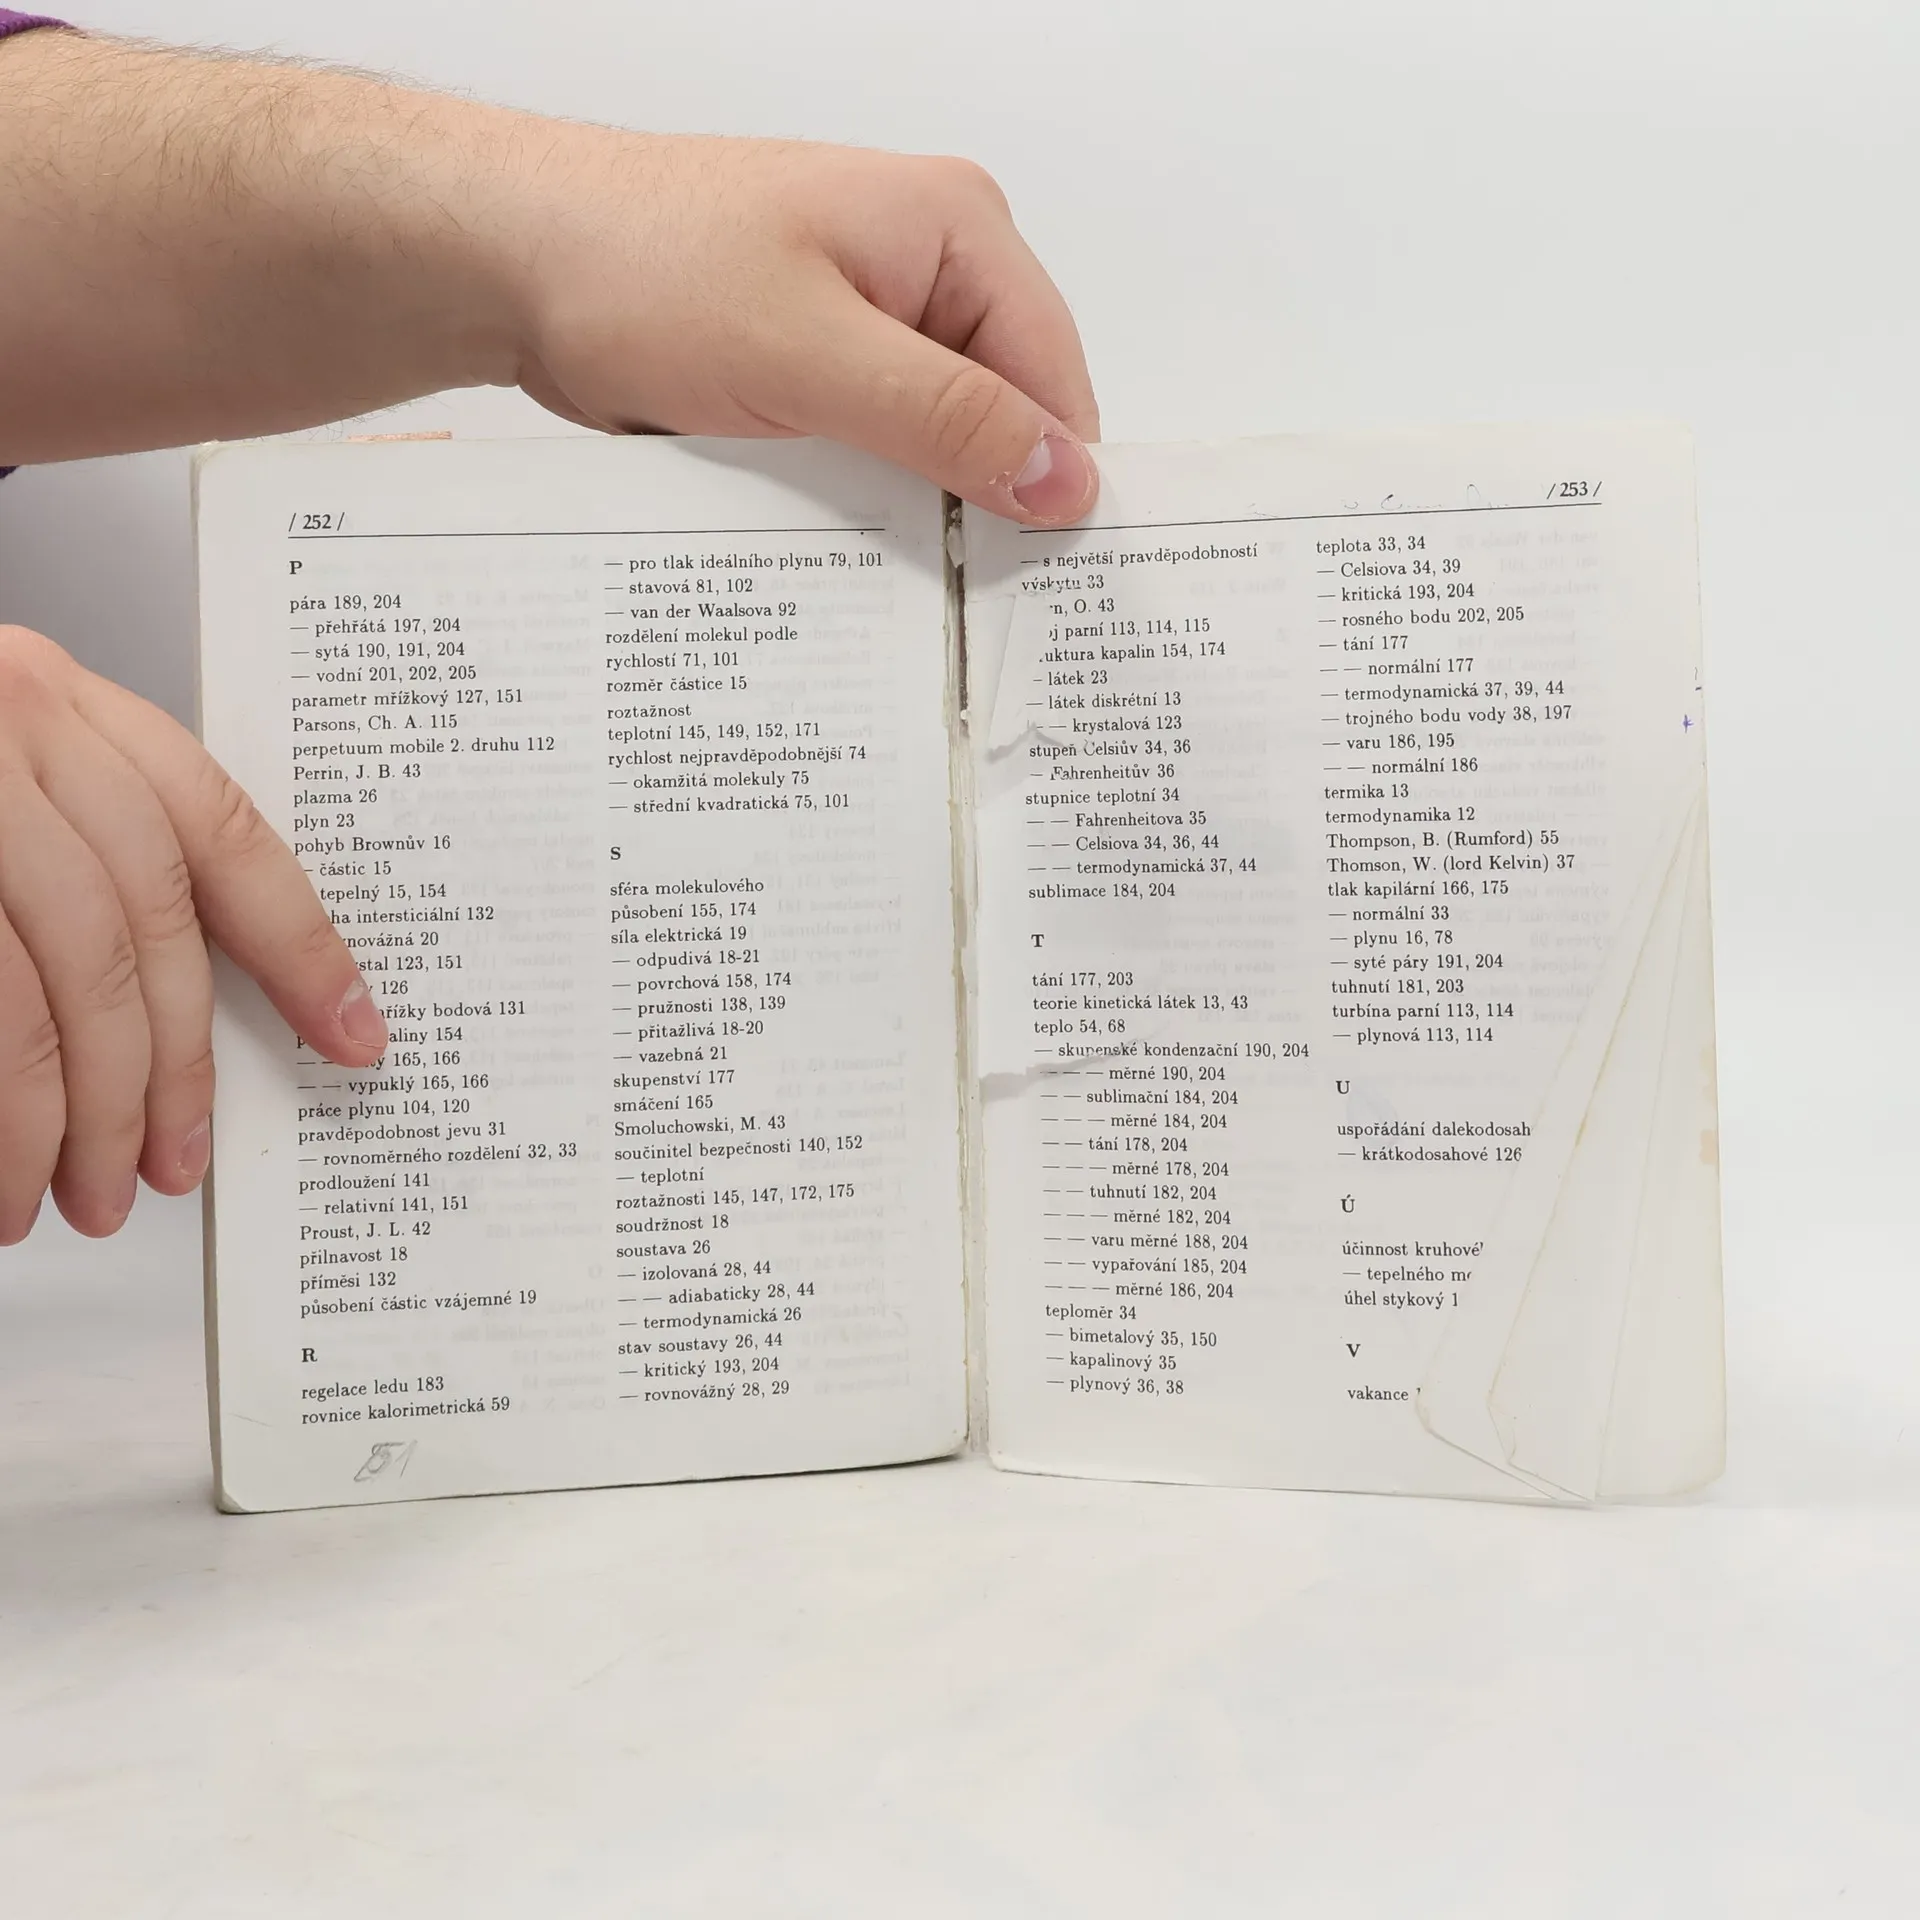 / 252 /
P
pára 189, 204
— přehřátá 197, 204
— sytá 190, 191, 204
— vodní 201, 202, 205
parametr mřížkový 127, 151
Parsons, Ch. A. 115
perpetuum mobile 2. druhu 112
Perrin, J. B. 43
plazma 26
plyn 23
pohyb Brownův 16
— částic 15
tepelný 15, 154
intersticiální 132
20
123, 151
126
bodová 131
154
165, 166
— — vypuklý 165, 166
práce plynu 104, 120
pravděpodobnost jevu 31
— rovnoměrného rozdělení 32, 33
prodloužení 141
— relativní 141, 151
Proust, J. L. 42
přilnavost 18
příměsi 132
působení částic vzájemné 19
R
regelace ledu 183
rovnice kalorimetrická 59
— pro tlak ideálního plynu 79, 101
— stavová 81, 102
— van der Waalsova 92
rozdělení molekul podle
rychlostí 71, 101
rozměr částice 15
roztažnost
teplotní 145, 149, 152, 171
rychlost nejpravděpodobnější 74
— okamžitá molekuly 75
— střední kvadratická 75, 101
S
sféra molekulového
působení 155, 174
síla elektrická 19
— odpudivá 18-21
— povrchová 158, 174
— pružnosti 138, 139
— přitažlivá 18-20
— vazebná 21
skupenství 177
smáčení 165
Smoluchowski, M. 43
součinitel bezpečnosti 140, 152
— teplotní
roztažnosti 145, 147, 172, 175
soudržnost 18
soustava 26
— izolovaná 28, 44
— — adiabaticky 28, 44
— termodynamická 26
stav soustavy 26, 44
— kritický 193, 204
— rovnovážný 28, 29
/ 253 /
— s největší pravděpodobností
výskytu 33
O. 43
parní 113, 114, 115
kapalin 154, 174
– látek 23
— látek diskrétní 13
— — krystalová 123
stupeň Celsiův 34, 36
— Fahrenheitův 36
stupnice teplotní 34
— — Fahrenheitova 35
— — Celsiova 34, 36, 44
— — termodynamická 37, 44
sublimace 184, 204
T
tání 177, 203
teorie kinetická látek 13, 43
teplo 54, 68
— skupenské kondenzační 190, 204
— — — měrné 190, 204
— — sublimační 184, 204
— — — měrné 184, 204
— — tání 178, 204
— — — měrné 178, 204
— — tuhnutí 182, 204
— — — měrné 182, 204
— — varu měrné 188, 204
— — vypařování 185, 204
— — — měrné 186, 204
teploměr 34
— bimetalový 35, 150
— kapalinový 35
— plynový 36, 38
teplota 33, 34
— Celsiova 34, 39
— kritická 193, 204
— rosného bodu 202, 205
— tání 177
— — normální 177
— termodynamická 37, 39, 44
— trojného bodu vody 38, 197
— varu 186, 195
— — normální 186
termika 13
termodynamika 12
Thompson, B. (Rumford) 55
Thomson, W. (lord Kelvin) 37
tlak kapilární 166, 175
— normální 33
— plynu 16, 78
— syté páry 191, 204
tuhnutí 181, 203
turbína parní 113, 114
— plynová 113, 114
U
uspořádání dalekodosah
— krátkodosahové 126
Ú
účinnost
— tepelného
úhel stykový
V
vakance